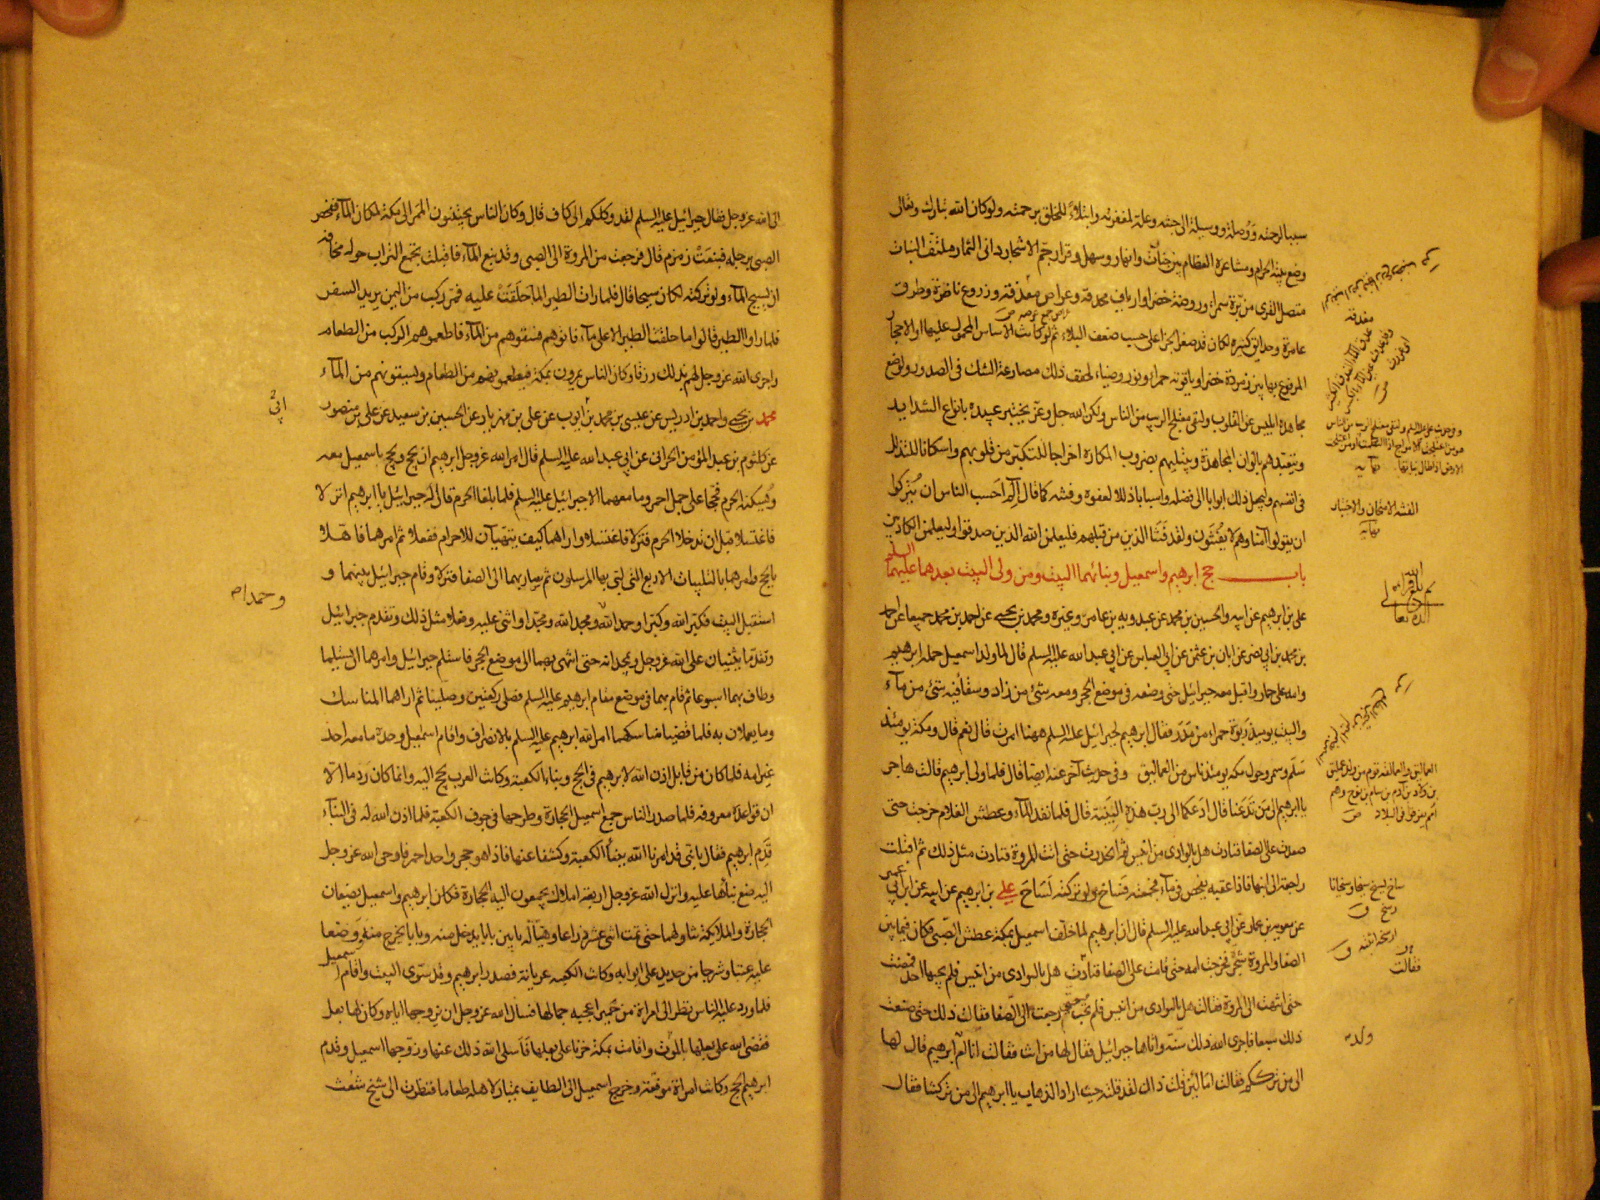 سببا لرحمته ووصلة ووسيلة الى جنته وعلة لمغفرته وابتلاء للخلق برحمته ولو كان الله تبارك وتعالى
وضع بيته الحرام ومشاعره العظام بين جنات وانهار وسهل وقرار جم الاشجار داني الثمار ملتف النبات
متصل القرى من برة سمراء وروضة خضراء وارياف محدقة وعراص مغدقة وزروع ناضرة وطرق
عامرة وحدائق كثيرة لكان قد صغر الجزاء على حسب ضعف البلاء ثم لو كانت الاساس المحمول عليها او الاحجار
المرفوع بها بين زمردة خضراء وياقوتة حمراء ونور وضياء لخفف ذلك مصارعة الشك في الصدور ولوضع
مجاهدة ابليس عن القلوب ولنفى معتلج الريب من الناس ولكن الله جل وعز يختبر عبيده بانواع الشدايد
ويتعبدهم بالوان المجاهدة ويبتليهم بضروب المكاره اخراجا للتكبر من قلوبهم واسكانا للتذلل
في انفسهم وليجعل ذلك ابوابا الى فضله واسبابا ذللا لعفوه وفتنه كما قال الم احسب الناس ان يتركوا
ان يقولوا امنا وهم لا يفتنون ولقد فتنا الذين من قبلهم فليعلمن الله الذين صدقوا وليعلمن الكاذبين
باب حج ابرهيم واسمعيل وبنائهما البيت ومن ولى البيت بعدهما عليهما السلم
علي بن ابرهيم عن ابيه والحسين بن محمد عن عبدويه بن عامر وغيره ومحمد بن يحيى عن احمد بن محمد جميعا عن احمد
بن محمد بن ابي نصر عن ابان بن عثمن عن ابي العباس عن ابي عبد الله عليه السلم قال لما ولد اسمعيل حمله ابرهيم
وامه على حمار واقبل معه جبرائيل حتى وضعه في موضع الحجر ومعه شئ من زاد وسقاء فيه شئ من ماء
والبيت يومئذ ربوة حمراء من مدر فقال ابرهيم لجبرائيل عليه السلم ههنا امرت قال نعم قال ومكة يومئذ
سلم وسمر وحول مكة يومئذ ناس من العماليق وفي حديث آخر عنه ايضا قال فلما ولى ابرهيم قالت هاجر
يا ابرهيم الى من تدعنا قال ادعكما الى رب هذه البنية قال فلما نفد الماء وعطش الغلام خرجت حتى
صعدت على الصفا فنادت هل بالوادى من انيس ثم انحدرت حتى اتت المروة فنادت مثل ذلك ثم اقبلت
راجعة الى ابنها فاذا عقبه يفحص في ماء فجمعته فساخ ولو تركته لساح علي بن ابرهيم عن ابيه عن ابن ابي عمير
عن معوية بن عمار عن ابي عبد الله عليه السلم قال ان ابرهيم لما خلف اسمعيل بمكة عطش الصبي فكان فيما بين
الصفا والمروة شجر فخرجت امه حتى قامت على الصفا فنادت هل بالوادى من انيس فلم يجبها احد فمضت
حتى انتهت الى المروة فقالت هل بالوادى من انيس فلم تجب ثم رجعت الى الصفا فقالت ذلك حتى صنعت
ذلك سبعا فاجرى الله ذلك سنة واتاها جبرائيل فقال لها من انت فقالت انا ام ولد ابرهيم قال لها
الى من ترككم فقالت اما لئن قلت ذاك لقد قلت حيث اراد الذهاب يا ابرهيم الى من تركتنا فقال
مغدقة
الفتنة الامتحان والاختبار
نهاية
العماليق والعمالقة قوم من ولد عمليق
بن لاوذ بن ارم بن سام بن نوح وهم
امم تفرقوا في البلاد ص
فقالت
ولد
الى الله عز وجل فقال جبرائيل عليه السلم لقد وكلكم الى كاف قال وكان الناس يجتنبون الممر الى مكة لمكان الماء ففحص
الصبي برجله فنبعت زمزم قال فرجعت من المروة الى الصبي وقد نبع الماء فاقبلت تجمع التراب حوله مخافة
ان يسيح الماء ولو تركته لكان سيحا قال فلما رات الطير الماء حلقت عليه فمر ركب من اليمن يريد السفر
فلما راوا الطير قالوا ما حلقت الطير الا على ماء فاتوهم فسقوهم من الماء فاطعموهم الركب من الطعام
واجرى الله عز وجل لهم بذلك رزقا وكان الناس يمرون بمكة فيطعمونهم من الطعام ويسقونهم من الماء
محمد بن يحيى واحمد بن ادريس عن عيسى بن محمد بن ايوب عن علي بن مهزيار عن الحسين بن سعيد عن علي بن منصور
عن كلثوم بن عبد المؤمن الحراني عن ابي عبد الله عليه السلم قال امر الله عز وجل ابرهيم ان يحج ويحج باسمعيل معه
ويسكنه الحرم فحجا على جمل احمر وما معهما الا جبرائيل عليه السلم فلما بلغا الحرم قال له جبرائيل يا ابرهيم انزلا
فاغتسلا قبل ان تدخلا الحرم فنزلا فاغتسلا واراهما كيف يتهيان للاحرام ففعلا ثم امرهما فاهلا
بالحج وامرهما بالتلبيات الاربع التي لبى بها المرسلون ثم صار بهما الى الصفا فنزلا وقام جبرائيل بينهما و
استقبل البيت فكبر الله وكبرا وحمد الله ومجد الله ومجدا واثنى عليه وفعلا مثل ذلك وتقدم جبرائيل
وتقدما يثنيان على الله عز وجل ويمجدانه حتى انتهى بهما الى موضع الحجر فاستلم جبرائيل وامرهما ان يستلما
وطاف بهما اسبوعا ثم قام بهما في موضع مقام ابرهيم عليه السلم فصلى ركعتين وصليا ثم اراهما المناسك
وما يعملان به فلما قضيا مناسكهما امر الله ابرهيم عليه السلم بالانصراف واقام اسمعيل وحده ما معه احد
غير امه فلما كان من قابل اذن الله لابرهيم في الحج وبناء الكعبة وكانت العرب تحج اليه وانما كان ردما الا
ان قواعده معروفة فلما صدر الناس جمع اسمعيل الحجارة وطرحها في جوف الكعبة فلما اذن الله له في البناء
قدم ابرهيم فقال يا بني قد امرنا الله ببناء الكعبة وكشفا عنها فاذا هو حجر واحد احمر فاوحى الله عز وجل
اليه ضع بناءها عليه وانزل الله عز وجل اربعة املاك يجمعون اليه الحجارة فكان ابرهيم واسمعيل يضعان
الحجارة والملائكة تناولهما حتى تمت اثنى عشر ذراعا وهيئا له بابين بابا يدخل منه وبابا يخرج منه ووضعا
عليه عتبا وشرجا من حديد على ابوابه وكانت الكعبة عريانة فصدر ابرهيم وقد سوى البيت واقام اسمعيل
فلما ورد عليه الناس نظر الى امراة من حمير اعجبه جمالها فسال الله عز وجل ان يزوجها اياه وكان لها بعل
فقضى الله على بعلها بالموت واقامت بمكة حزنا على بعلها فاسلى الله ذلك عنها وزوجها اسمعيل وقدم
ابرهيم الحج وكانت امراة موفقة وخرج اسمعيل الى الطايف يمتار لاهله طعاما فنظرت الى شيخ شعث
وحمداه